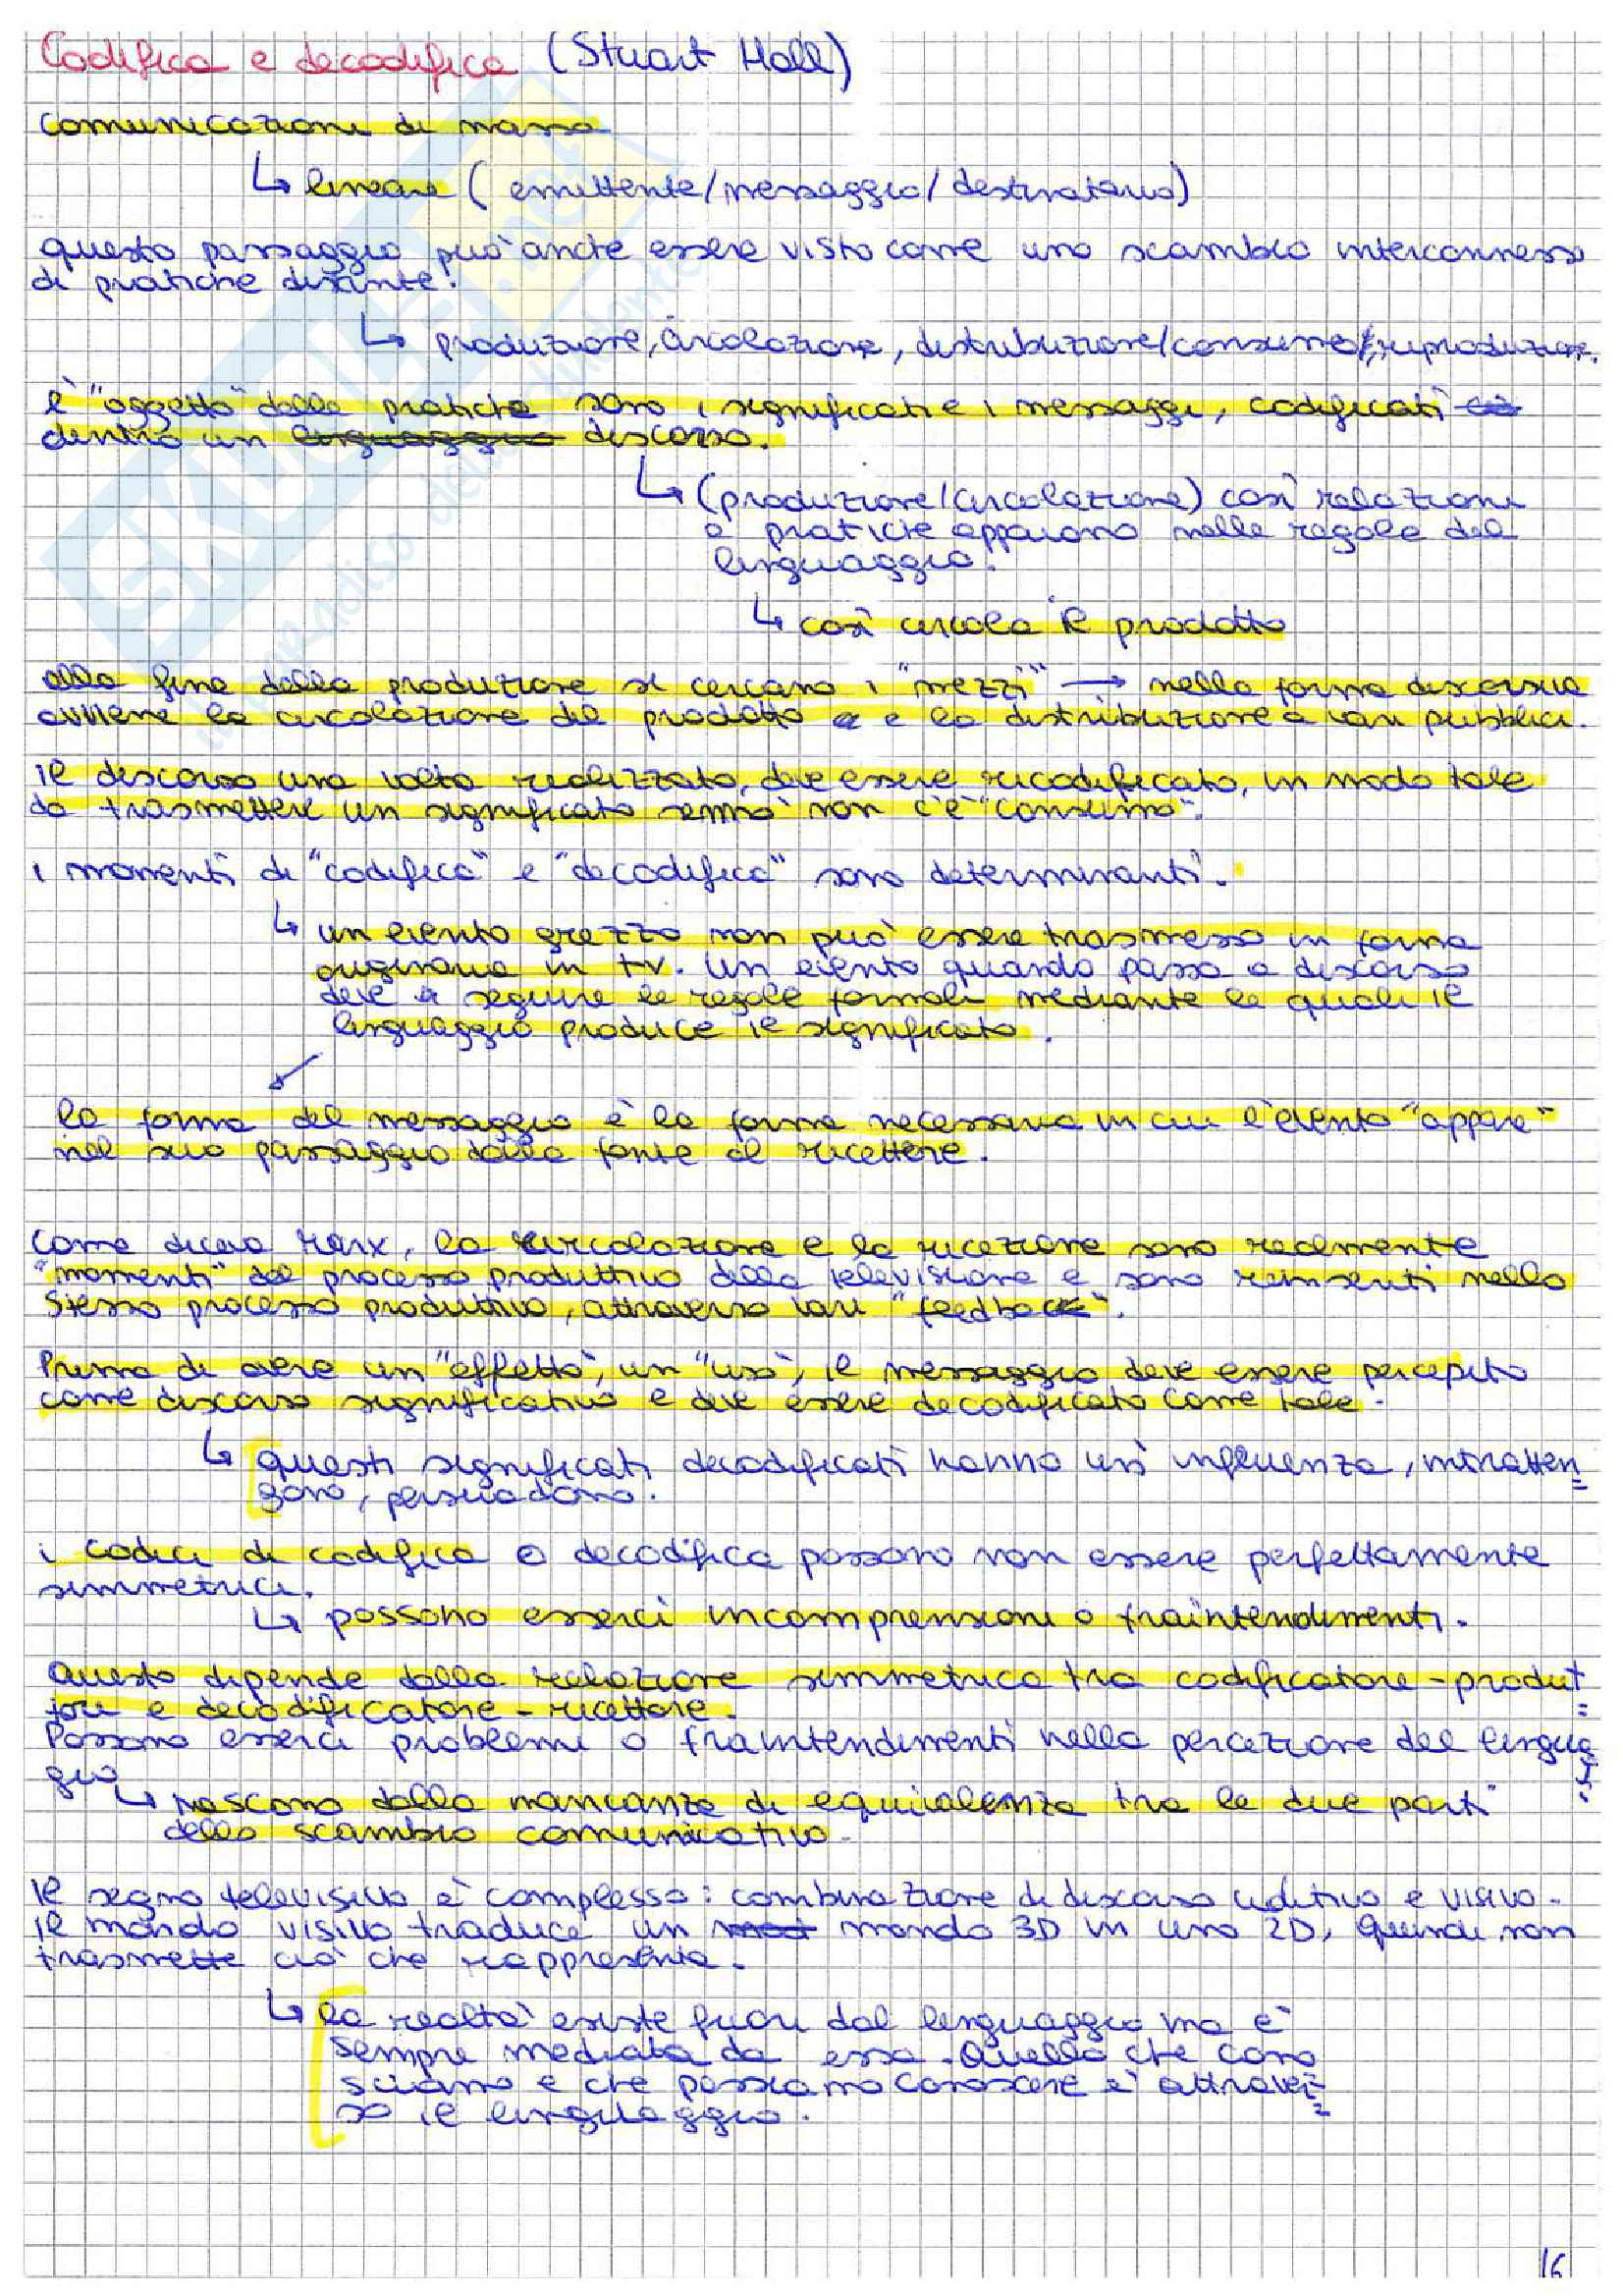 Codifica e decodifica (Stuart Hall)
comunicazioni di massa
↳ lineare (emittente/messaggio/destinatario)
questo passaggio può anche essere visto come uno scambio interconnesso
di pratiche distinte.
↳ produzione, circolazione, distribuzione/consumo, riproduzione.
l'"oggetto" delle pratiche sono i significati e i messaggi, codificati
dentro un linguaggio discorso.
↳ (produzione/circolazione) così relazioni
e pratiche appaiono nelle regole del
linguaggio.
↳ così circola il prodotto
alla fine della produzione si cercano i "mezzi" → nella forma discorsiva
avviene la circolazione del prodotto e la distribuzione a vari pubblici.
il discorso una volta realizzato, deve essere ricodificato, in modo tale
da trasmettere un significato sennò non c'è "consumo".
i momenti di "codifica" e "decodifica" sono determinanti.
↳ un evento grezzo non può essere trasmesso in forma
originaria in tv. Un evento quando passa a discorso
deve seguire le regole formali mediante le quali il
linguaggio produce il significato.
la forma del messaggio è la forma necessaria in cui l'evento "appare"
nel suo passaggio dalla fonte al ricettore.
Come diceva Marx, la circolazione e la ricezione sono realmente
"momenti" del processo produttivo della televisione e sono reinseriti nello
stesso processo produttivo, attraverso vari "feedback".
Prima di avere un "effetto", un "uso", il messaggio deve essere percepito
come discorso significativo e deve essere decodificato come tale.
↳ questi significati decodificati hanno un'influenza, intratten=
gono, persuadono.
i codici di codifica o decodifica possono non essere perfettamente
simmetrici.
↳ possono esserci incomprensioni o fraintendimenti.
Questo dipende dalla relazione simmetrica tra codificatore-produt=
tore e decodificatore-ricettore.
Possono esserci problemi o fraintendimenti nella percezione del lingua=
gio
↳ nascono dalla mancanza di equivalenza tra le due parti
dello scambio comunicativo.
il segno televisivo è complesso: combinazione di discorso uditivo e visivo.
il mondo visivo traduce un mondo 3D in uno 2D, quindi non
trasmette ciò che rappresenta.
↳ la realtà esiste fuori dal linguaggio ma è
sempre mediata da esso. Quello che cono
sciamo e che possiamo conoscere è attraver=
so il linguaggio.
16
SKUOLA.net
il paradiso dello studente